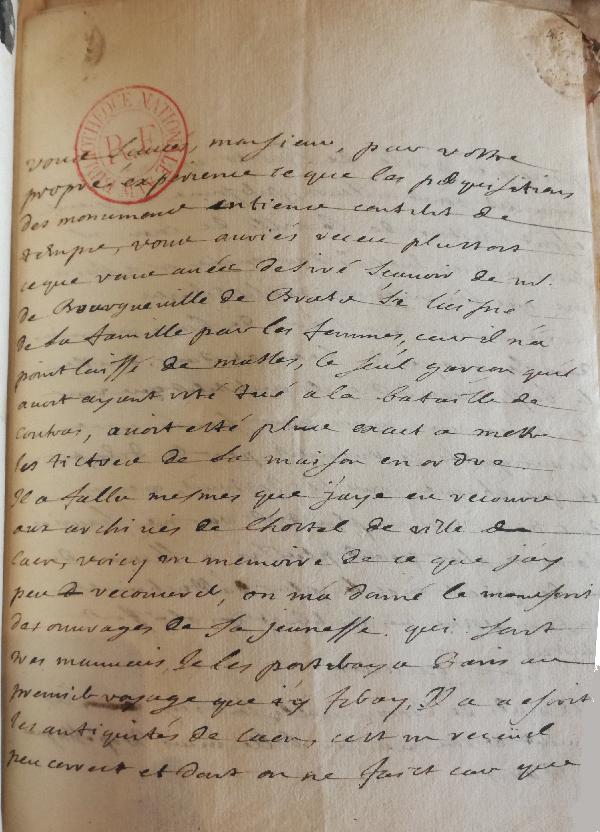 BIBLIOTHEQUE NATIONALE
R.F.
vous sçavés, monsieur, par vostre
propre expérience ce que les perquisitions
des monuments entiens coutent de
temps, vous auriés receu plustost
ce que vous avés desiré scavoir de mr.
de Bourgueville de Bras si
de la famille par les femmes, car il n'a
point laissé de masles, le seul garcon quil
avoit ayant esté tué a la bataille de
Coutras, avoit esté plus exact a mettre
les tictres de sa maison en ordre
Il a fallu mesmes que j'aye eu recours
aux archives de l'hostel de ville de
Caen, voicy un memoire de ce que j'ay
peu recouvrer, on m'a donné le manuscrit
des ouvrages de sa jeunesse qui sont
tres mauvais, Je les porteray a Paris au
premier voyage que j'y feray, Il a escrit
les antiquités de Caen, c'est un recueil
peu correct et dont on ne faict cas que